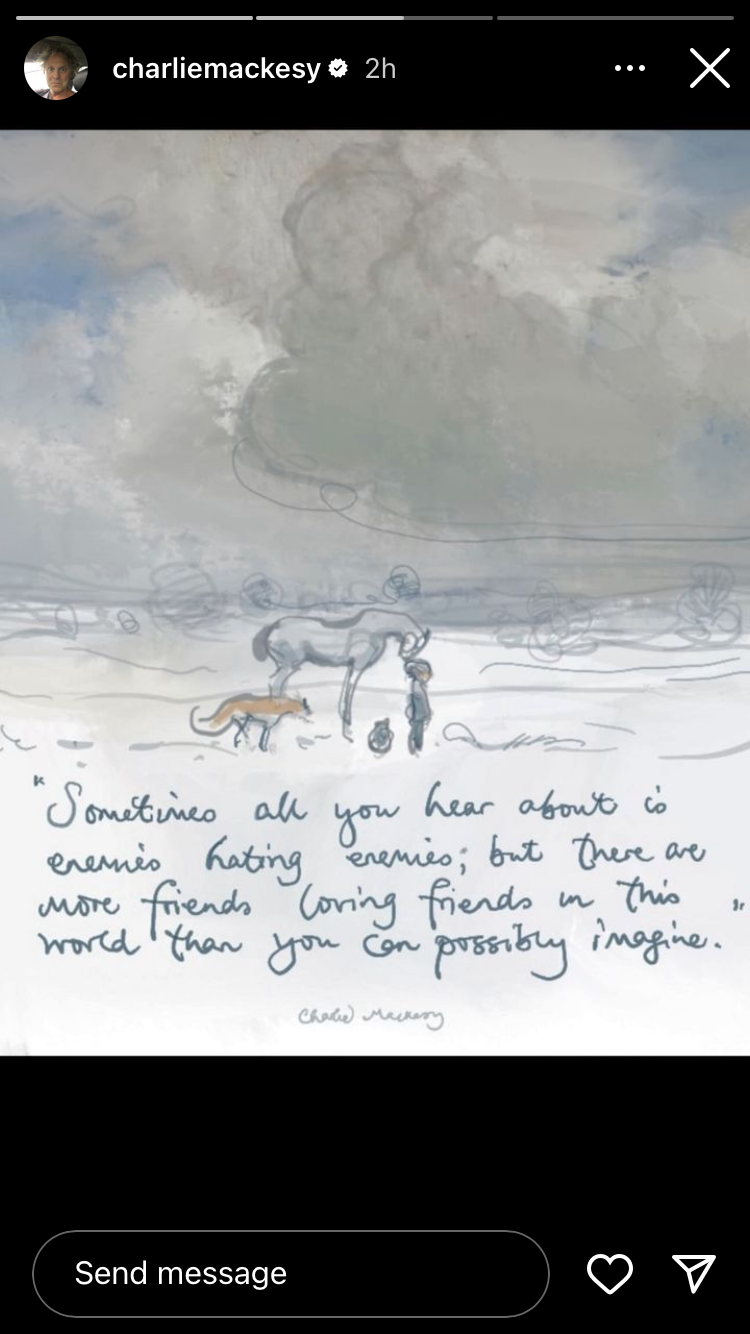 charliemackesy 2h
"Sometimes all you hear about is
enemies hating enemies; but there are
more friends loving friends in this
world than you can possibly imagine."
Charlie Mackesy
Send message